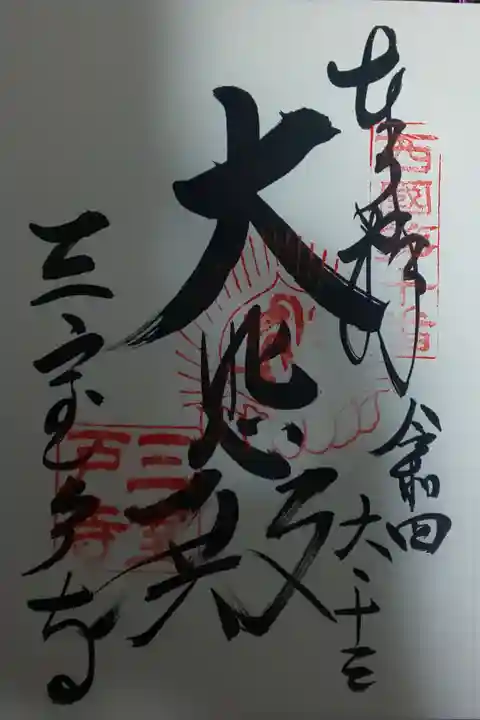 奉拝
西國第十番
令和四
六・十三
大悲殿
三室戸寺
三室
戸寺